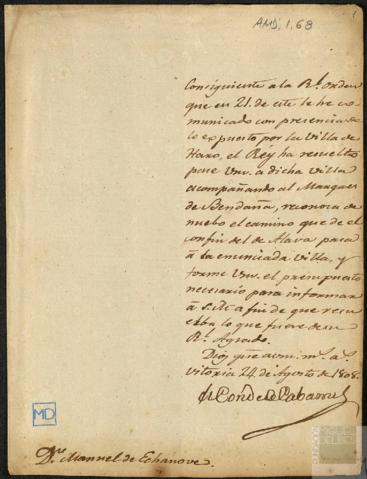 AMD, 1, 68
Consiguiente a la Rl. orden
que en 21. de este le he co-
municado con presencia de
lo expuesto por la Villa de
Haro, el Rey ha resuelto
pase Vm. a dicha villa
acompañando al Marques
de Bendaña, reconozca de
nuebo el camino que de el
confin del de Alava pasa
á la enunciada villa, y
forme Vm. el presupuesto
necesario para informar
á S.M. a fin de que resu
elba lo que fuere de su
Rl. Agrado.
Dios gue. a vm. ms. as.
Vitoria 24. de Agosto de 1808.
el Conde de Cabarrus
MD
Dn. Manuel de Echanove.